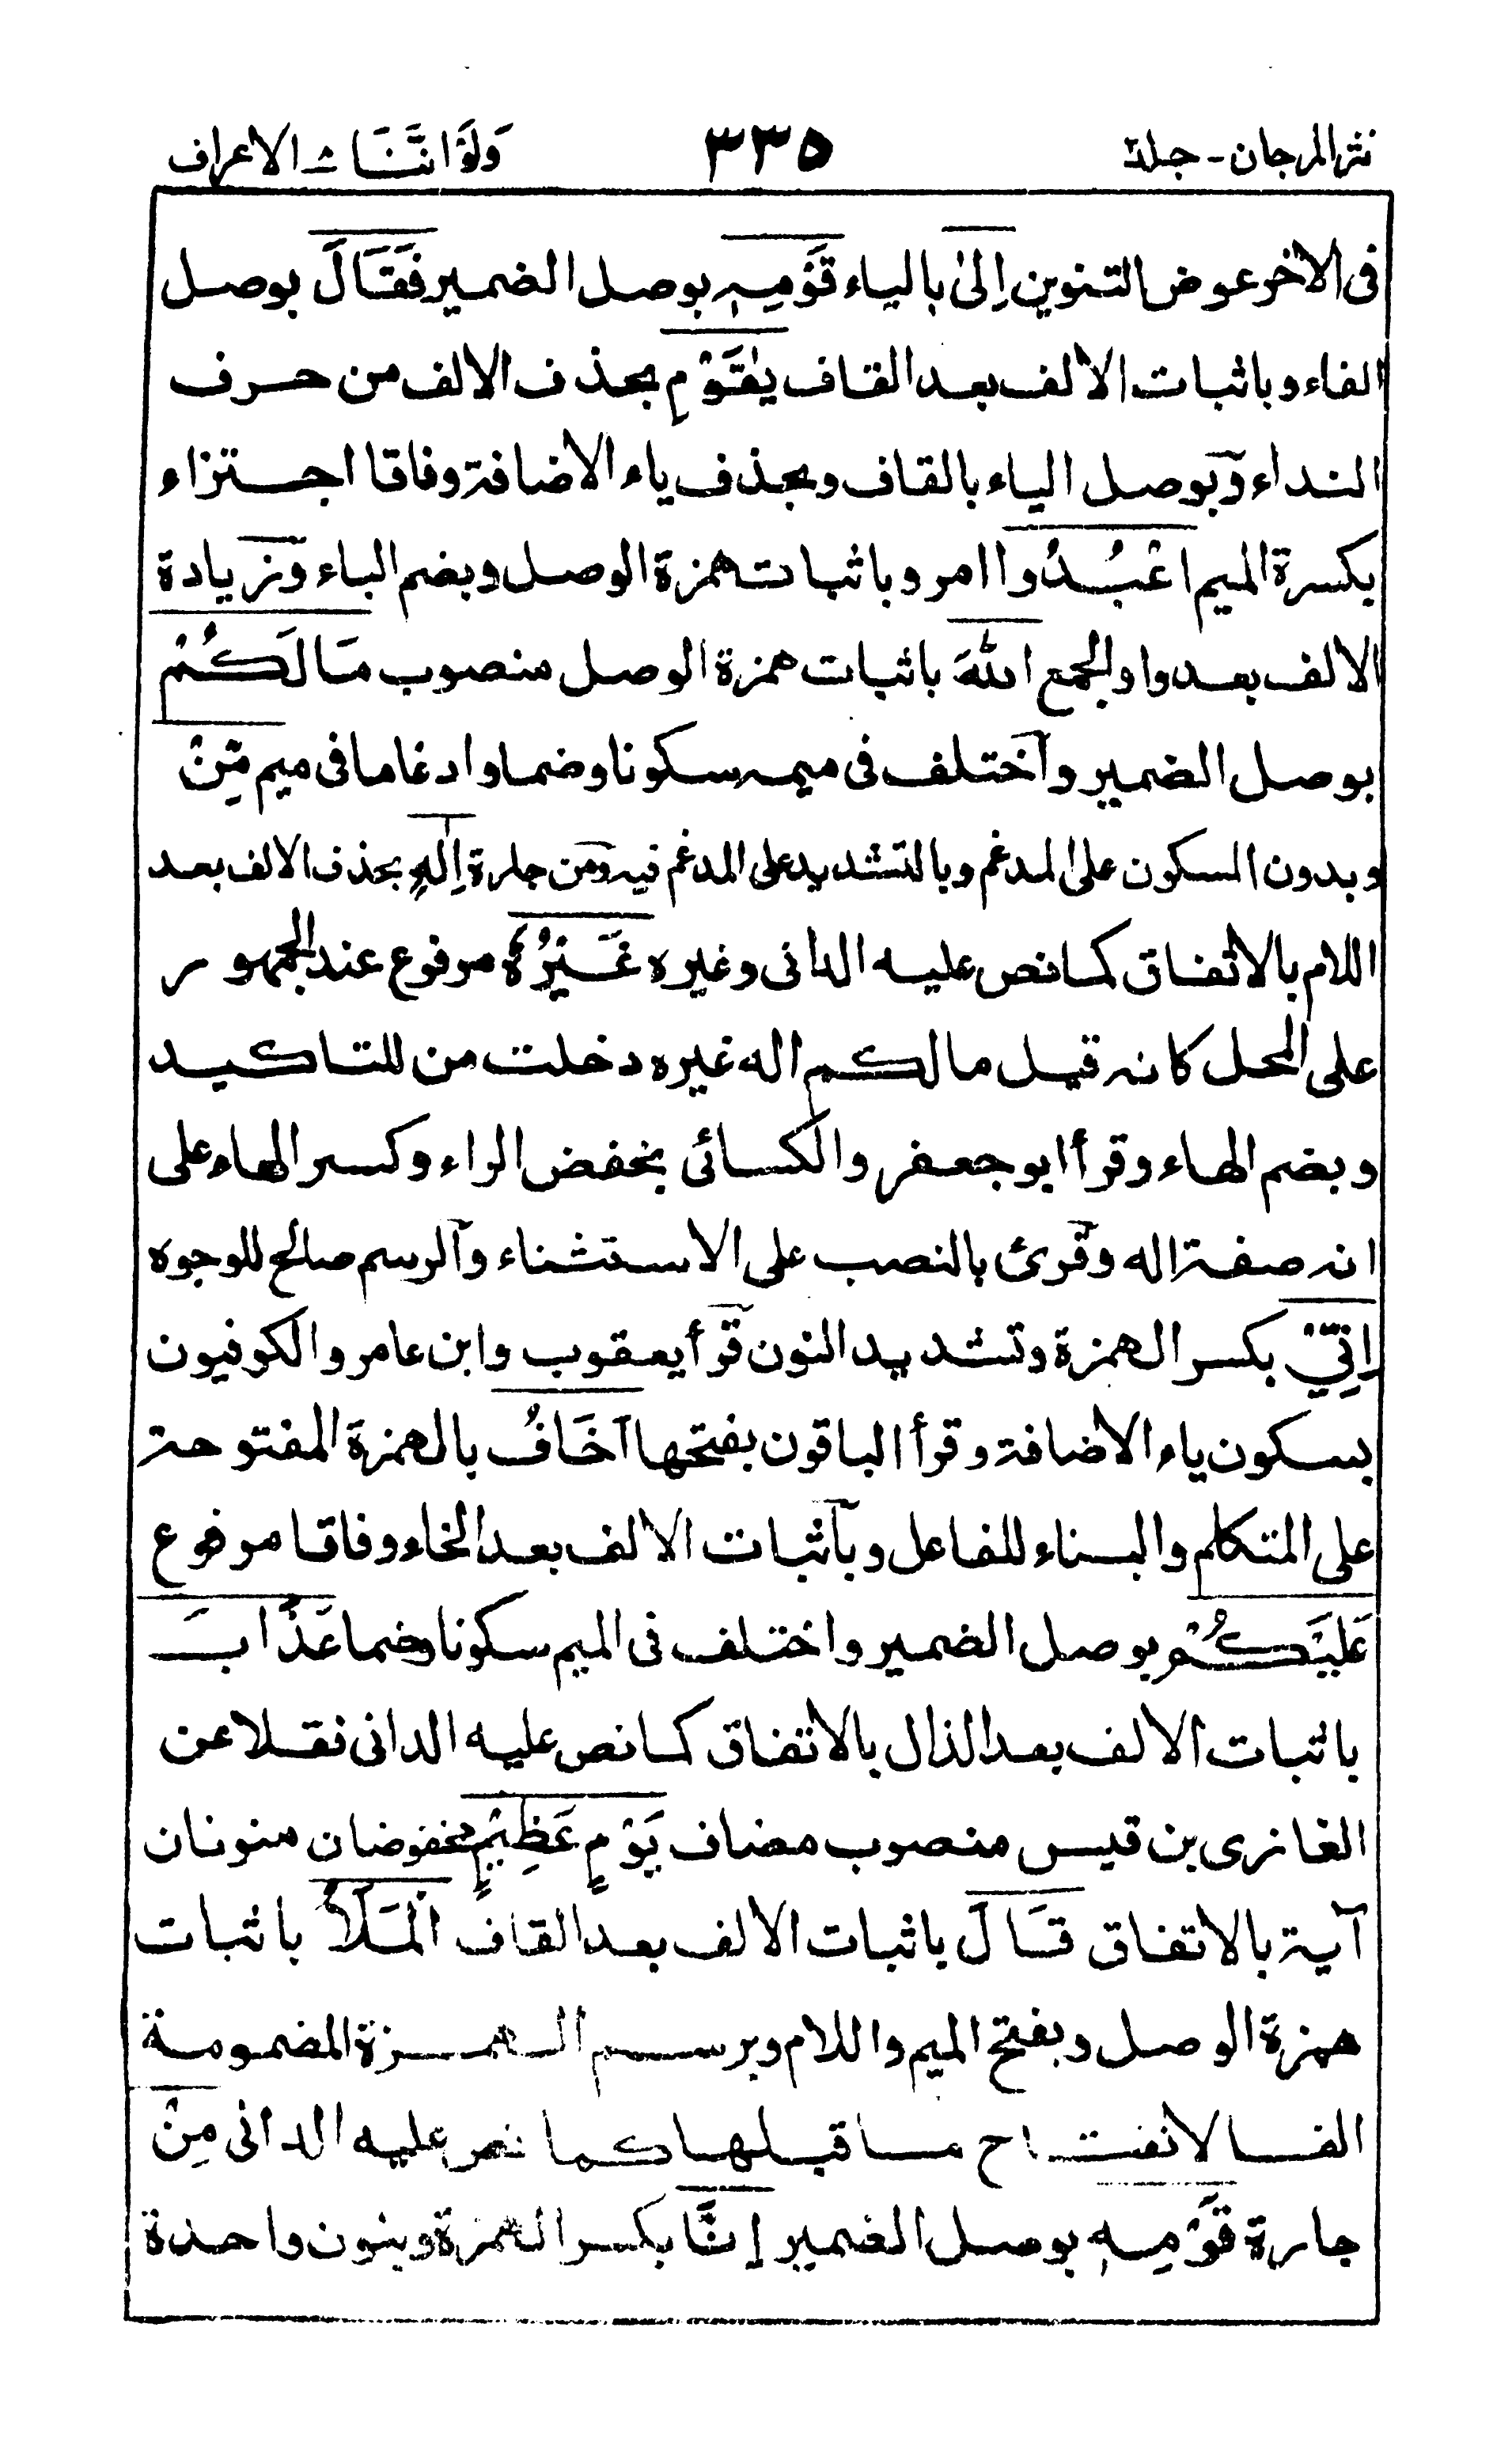 نثر المرجان - جلد٢ ٣٣٥ وَلَوْ اَنَّنَا ـ الاعراف
فى الاخر عوض التنوين اِلىٰ بالياء قَوْمِهٖ بوصل الضمير فَقَالَ بوصل
الفاء و باثبات الالف بعد القاف يٰقَوْمِ بحذف الالف من حرف
النداء و بوصل الياء بالقاف و بحذف ياء الاضافة وفاقا اجتزاء
بكسرة الميم اعْبُدُوا امر و باثبات همزة الوصل و بضم الباء و زيادة
الالف بعد واو الجمع اللّٰهَ باثبات همزة الوصل منصوب مَالَكُمْ
بوصل الضمير و اختلف فى ميمه سكونا و ضما و ادغاما فى ميم مِّنْ
و بدون السكون على المدغم و بالتشديد على المدغم فيه و من جارة اِلٰهٍ بحذف الالف بعد
اللام بالاتفاق كما نص عليه الدانى و غيره غَيْرُهٗ مرفوع عند الجمهور
على المحل كانه قيل مالكم اله غيره دخلت من للتاكيد
و بضم الهاء و قرأ ابو جعفر و الكسائى بخفض الراء و كسر الهاء على
انه صفة اله و قرئ بالنصب على الاستثناء و الرسم صالح للوجوه
اِنِّىْ بكسر الهمزة و تشديد النون قرأ يعقوب و ابن عامر و الكوفيون
بسكون ياء الاضافة و قرأ الباقون بفتحها اَخَافُ بالهمزة المفتوحة
على المتكلم و البناء للفاعل و باثبات الالف بعد الخاء وفاقا مرفوع
عَلَيْكُمْ بوصل الضمير و اختلف فى الميم سكونا و ضما عَذَابَ
باثبات الالف بعد الذال بالاتفاق كما نص عليه الدانى نقلا عن
الغازى بن قيس منصوب مضاف يَوْمٍ عَظِيْمٍ مخفوضان منونان
آية بالاتفاق قَالَ باثبات الالف بعد القاف الْمَلَاُ باثبات
همزة الوصل و بفتح الميم و اللام و برسم الهمزة المضمومة
الفا لانفتاح ما قبلها كما نص عليه الدانى مِنْ
جارة قَوْمِهٖ بوصل الضمير اِنَّا بكسر الهمزة و بنون واحدة